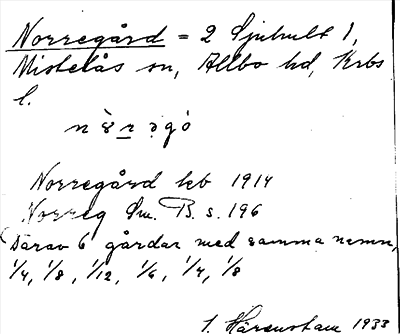 Norregård = 2 Sjuhult 1,
Mistelås sn, Allbo hd, Krbs
l.
Norregård kb 1914
Norreg Sm. B. s. 196
Därav 6 gårdar med samma namn,
1/4, 1/8, 1/12, 1/6, 1/4, 1/8
1933